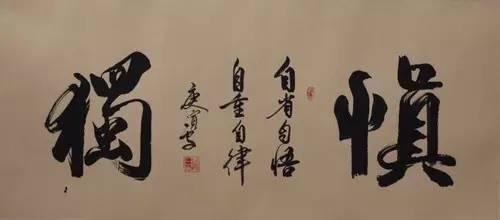 慎
自省自悟
自重自律
獨